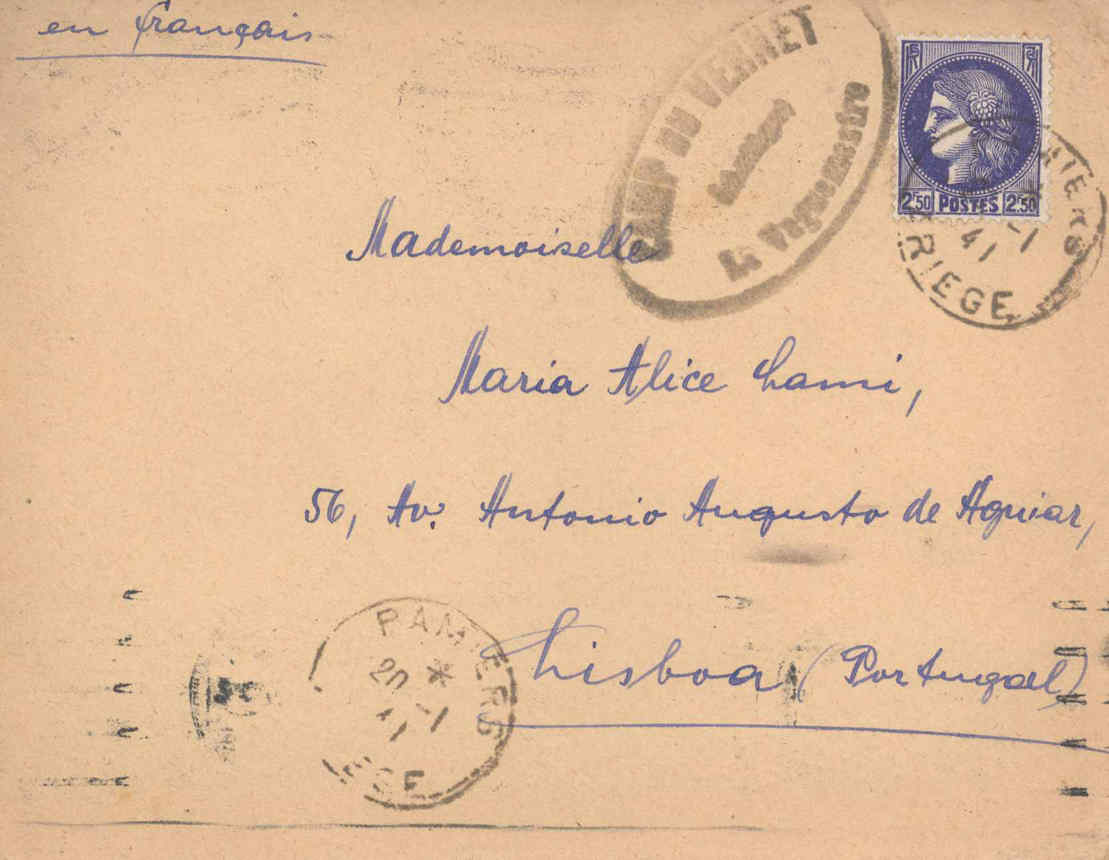 en français
CAMP DU VERNET
Le Vaguemestre
2F50 POSTES 2F50
PAMIERS
-1
41
ARIEGE
Mademoiselle
Maria Alice Lami,
56, Av. Antonio Augusto de Aguiar,
Lisboa (Portugal)
PAMIERS
*
20 -1
41